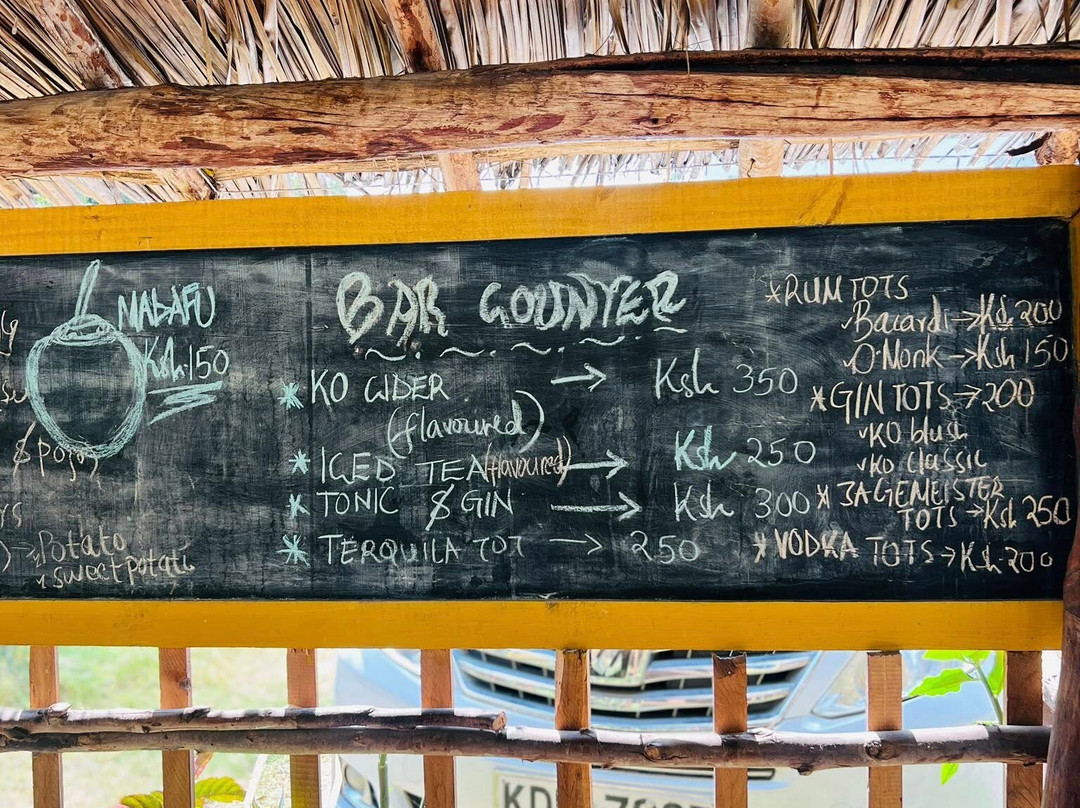 MADAFU
Ksh.150
Potato
sweet potato
BAR COUNTER
* KO CIDER → Ksh 350
(flavoured)
* ICED TEA (flavoured) → Ksh 250
* TONIC & GIN → Ksh 300
* TERQUILA TOT → 250
* RUM TOTS
Bacardi → Ksh 200
O·Monk → Ksh 150
* GIN TOTS → 200
KO blush
KO classic
* JAGEMEISTER
TOTS → Ksh 250
* VODKA TOTS → Ksh 200